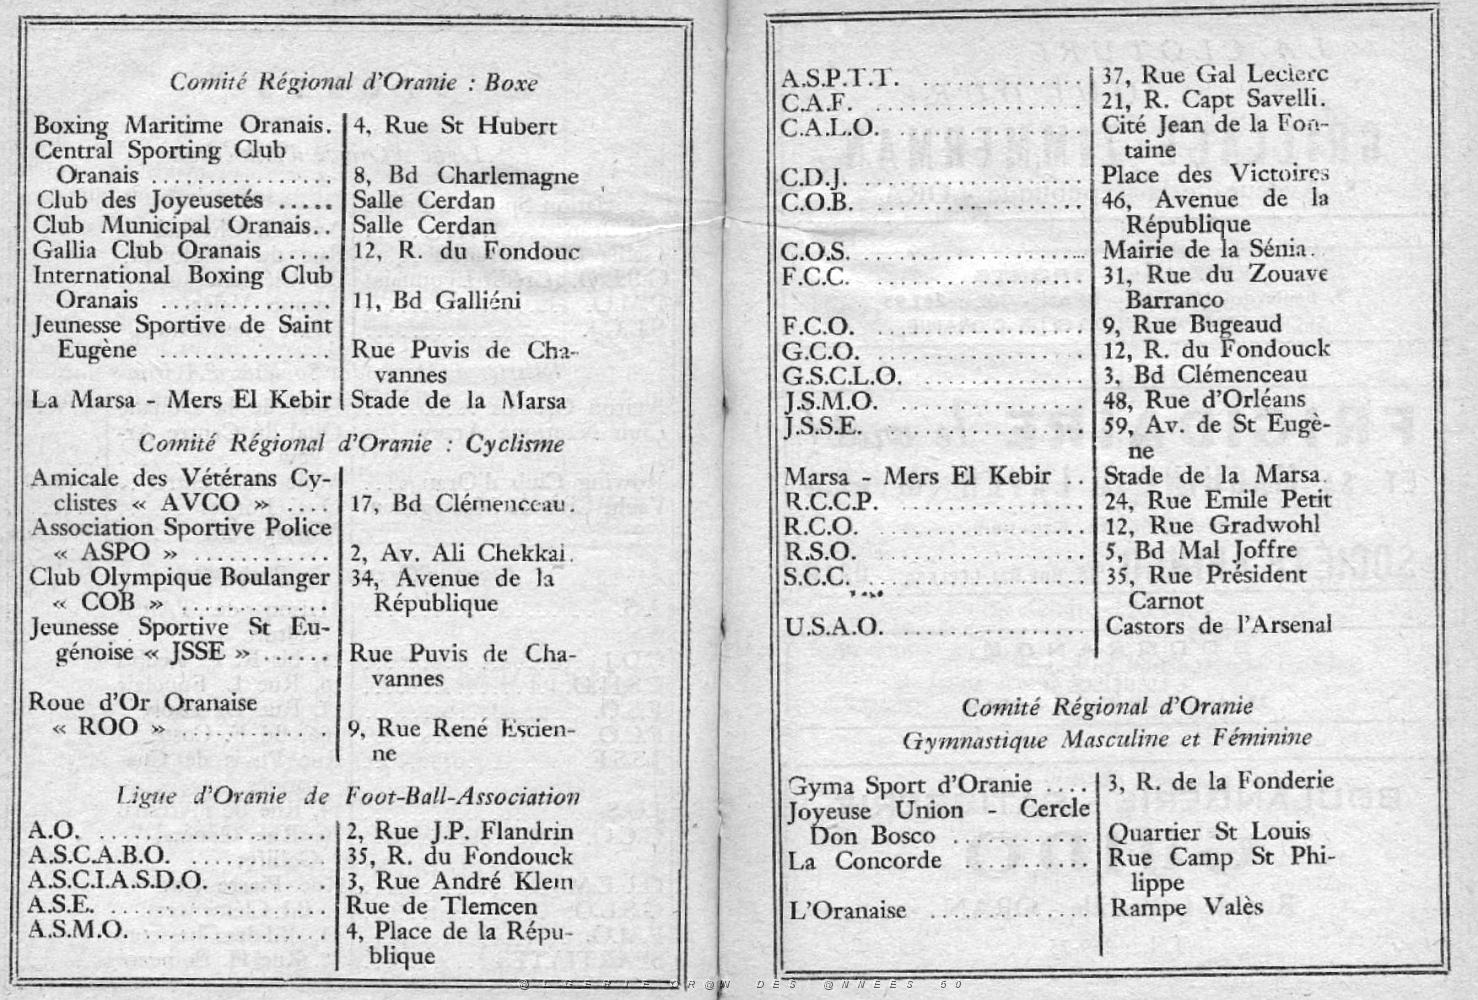 Comité Régional d'Oranie : Boxe
Boxing Maritime Oranais. 4, Rue St Hubert
Central Sporting Club
Oranais ............... 8, Bd Charlemagne
Club des Joyeusetés ..... Salle Cerdan
Club Municipal Oranais.. Salle Cerdan
Gallia Club Oranais ..... 12, R. du Fondouc
International Boxing Club
Oranais .............. 11, Bd Galliéni
Jeunesse Sportive de Saint
Eugène .............. Rue Puvis de Cha-
vannes
La Marsa - Mers El Kebir Stade de la Marsa
Comité Régional d'Oranie : Cyclisme
Amicale des Vétérans Cy-
clistes « AVCO » .... 17, Bd Clémenceau.
Association Sportive Police
« ASPO » ........... 2, Av. Ali Chekkal.
Club Olympique Boulanger 34, Avenue de la
« COB » ............ République
Jeunesse Sportive St Eu-
génoise « JSSE » ...... Rue Puvis de Cha-
vannes
Roue d'Or Oranaise
« ROO » ............ 9, Rue René Estien-
ne
Ligue d'Oranie de Foot-Ball-Association
A.O. ................... 2, Rue J.P. Flandrin
A.S.C.A.B.O. ........... 35, R. du Fondouck
A.S.C.I.A.S.D.O. ........ 3, Rue André Klein
A.S.E. .................. Rue de Tlemcen
A.S.M.O. ............... 4, Place de la Répu-
blique
A.S.P.T.T. .............. 37, Rue Gal Leclerc
C.A.F. .................. 21, R. Capt Savelli.
C.A.L.O. ................ Cité Jean de la Fon-
taine
C.D.J. ................... Place des Victoires
C.O.B. .................. 46, Avenue de la
République
C.O.S. ................... Mairie de la Sénia.
F.C.C. ................... 31, Rue du Zouave
Barranco
F.C.O. .................. 9, Rue Bugeaud
G.C.O. .................. 12, R. du Fondouck
G.S.C.L.O. .............. 3, Bd Clémenceau
J.S.M.O. ................ 48, Rue d'Orléans
J.S.S.E. ................. 59, Av. de St Eugè-
ne
Marsa - Mers El Kebir .. Stade de la Marsa.
R.C.C.P. ................ 24, Rue Emile Petit
R.C.O. .................. 12, Rue Gradwohl
R.S.O. .................. 5, Bd Mal Joffre
S.C.C. ................... 35, Rue Président
Carnot
U.S.A.O. ................ Castors de l'Arsenal
Comité Régional d'Oranie
Gymnastique Masculine et Féminine
Gyma Sport d'Oranie .... 3, R. de la Fonderie
Joyeuse Union - Cercle
Don Bosco ........... Quartier St Louis
La Concorde .......... Rue Camp St Phi-
lippe
L'Oranaise .............. Rampe Valès
@LGERIE OR@N DES @NNEES 50